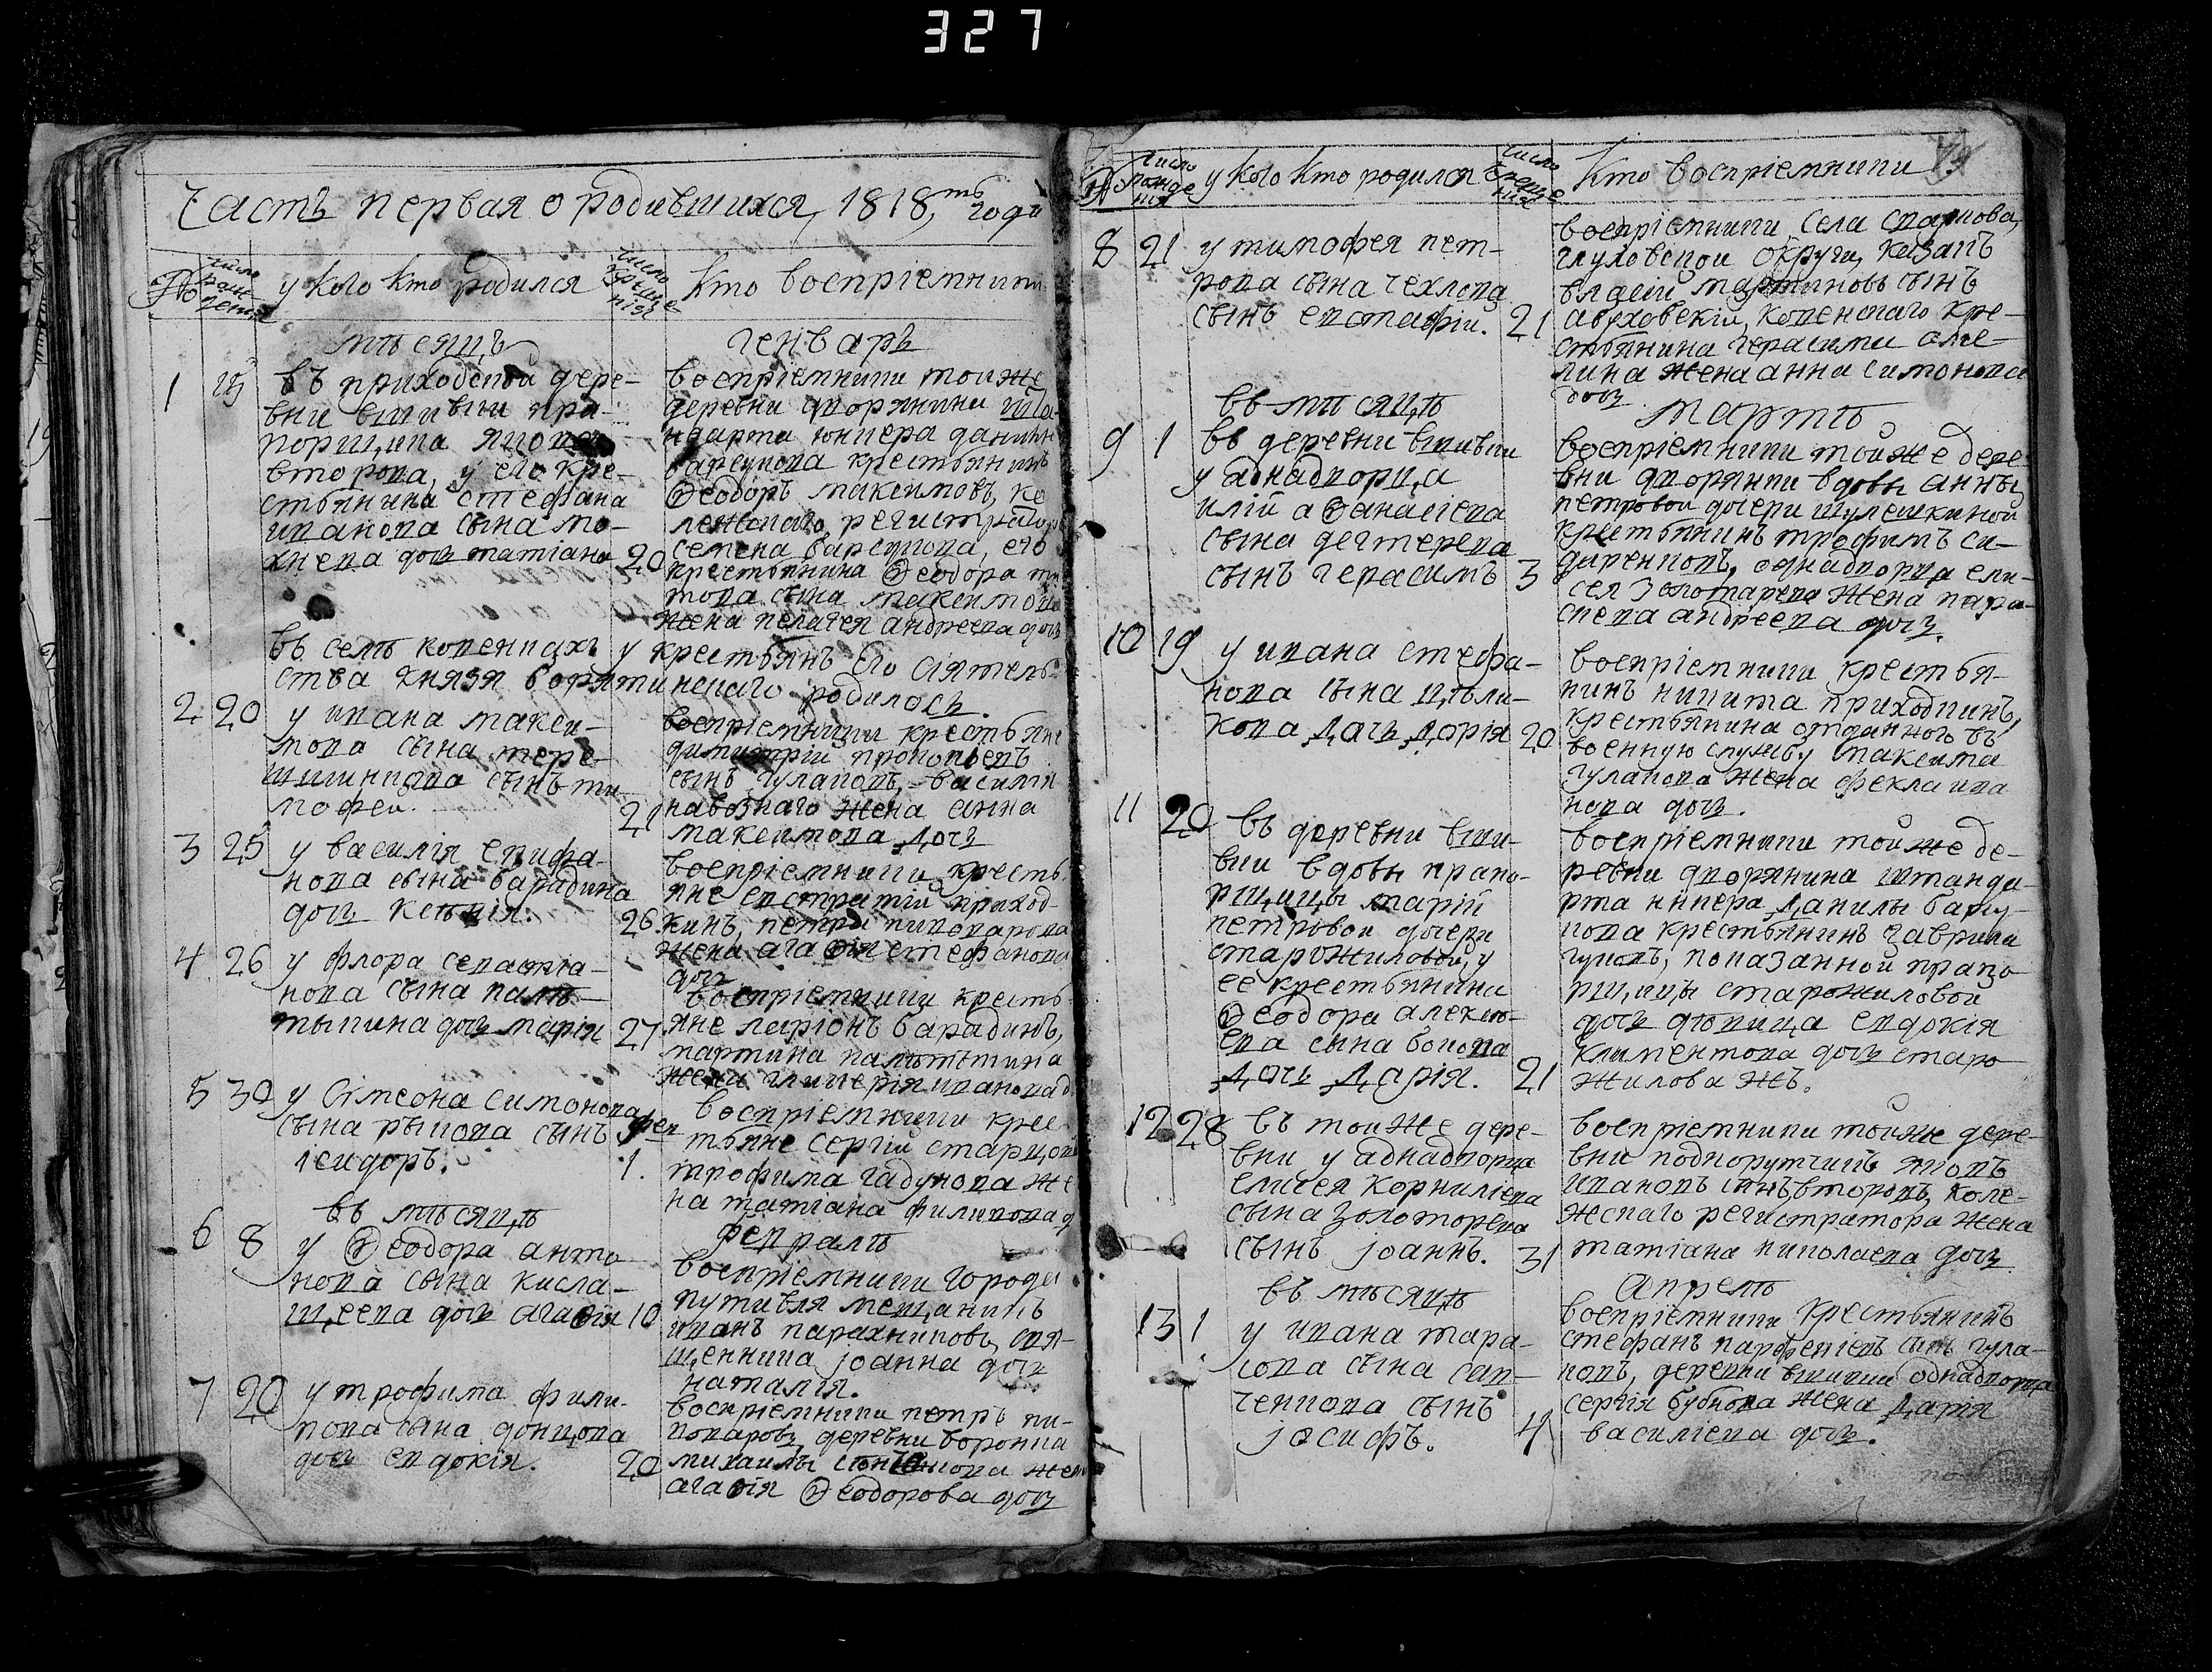 327
Часть первая о родившихся, 1818,ᵐᵇ года
№
число рожденія
у кого кто родился
число крещенія
Кто воспріемники
мѣсяцъ
генварь
1
въ приходской дере-
вни пра-
порщика якова
второва, у его кре-
стьянина стефана
иванова сына мо-
хнева дочь татіана
20
воспріемники тойже
деревни дворянина шта-
ндарта юнкера данилы
барсукова крестьянинъ
Ѳеодоръ максимовъ, ко
лежскаго регистратора
семена барсукова, его
крестьянина Ѳеодора
това сына максимова
жена пелагея андреева дочь
въ селѣ копенкахъ у крестьянъ Его сіятель-
ства князя борятинскаго родилось.
2
20
у ивана макси-
мова сына тере-
шинкова сынъ ти
мофей.
21
воспріемники крестьяне
димитрій прокопьевъ
сынъ гулаковъ, василія
навознаго жена анна
максимова дочь
3
25
у василія епифа-
нова сына барадина
дочь ксенія.
26
воспріемники кресть
яне евстратій приход-
кинъ, петра пивоварова
жена агаѳія стефанова
дочь
4
26
у флора севастіа-
нова сына палѣ-
тыкина дочь марія
27
воспріемники кресть
яне ларіонъ барадинъ,
мартина палѣтыкина
жена гликерія иванова д
5
30
у Сімеона симонова
сына рыкова сынъ
ісидоръ.
фев
1.
воспріемники крес-
тьяне сергій старцовъ
трофима гадунова же
на татіана филипова д
въ мѣсяцѣ
февралѣ
6
8
у Ѳеодора анто
нова сына кисла-
щеева дочь агаѳія
10
воспріемники города
путивля мещанинъ
иванъ парахниковъ, свя-
щенника іоанна дочь
наталія.
7
20
у трофима фили-
пова сына донцова
дочь евдокія.
20
воспріемники петръ пи-
воваровъ деревни воронка
михаилы жена
агаѳія Ѳеодорова дочь
№
число рожденія
у кого кто родился
число крещенія
Кто воспріемники
8
21
у тимофея пет-
рова сына чехлова
сынъ евстафій.
21
воспріемники села
глуховской округи, казакъ
власій мартиновъ сынъ
копенскаго кре-
стьянина герасима
лина жена анна симонова
дочь
въ мѣсяцѣ
мартѣ
9
1
въ деревни
у аднадворца
илій аѲанасіева
сына дегтерева
сынъ герасимъ
3
воспріемники тойже дере
вни дворянки вдовы анны
петровой дочери шулешкиной
крестьянинъ трофимъ си-
даренковъ, однадворца ели-
сея золотарева жена пара-
скева андреева дочь.
10
19
у ивана стефа-
нова сына цѣли-
кова дочь дарія
20
воспріемники крестья-
нинъ никита приходкинъ,
крестьянина отданного въ
военную службу максима
гулакова жена фекла ива
нова дочь.
11
20
въ деревни
вдовы прапо-
рщицы марій
петровой дочери
старожиловой, у
ее крестьянина
Ѳеодора алексѣ-
ева сына бокова
дочь дарія.
21
воспріемники тойже де-
ревни дворянина штанда-
рта юнкера данилы барсу-
кова крестьянинъ гаврила
гуковъ, показанной прапо
рщицы старожиловой
дочь дѣвица евдокія
климентова дочь старо
жилова жъ.
12
28
въ тойже дере-
вни у аднадворца
елисея корниліева
сына золоторева
сынъ іоаннъ.
31
воспріемники тойже дере-
вни подпорутчикъ яковъ
ивановъ сынъ второвъ, коле-
жскаго регистратора жена
татіана николаева дочь
въ мѣсяцѣ
Апрелѣ
13
1
у ивана тара-
сова сына сав-
ченкова сынъ
іосифъ.
4
воспріемники крестьянинъ
стефанъ парфеніевъ сынъ гула-
ковъ, деревни однадворца
сергія бубнова жена дарія
василіева дочь.